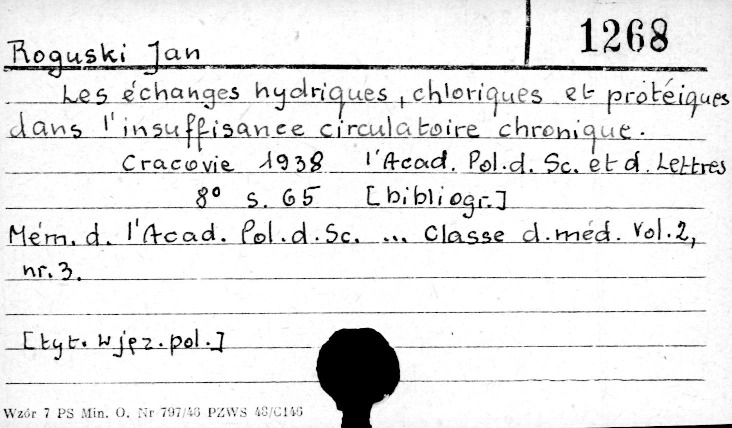 1268
Roguski Jan
Les échanges hydriques, chloriques et protéiques
dans l'insuffisance circulatoire chronique.
Cracovie 1938 l'Acad. Pol.d. Sc. et d. Lettres
8° s. 65 [bibliogr.]
Mém. d. l'Acad. Pol.d.Sc. ... Classe d.méd. Vol.2,
nr.3.
[tyt. w jęz.pol.]
Wzór 7 PS Min. O. Nr 797/46 PZWS 46/C146